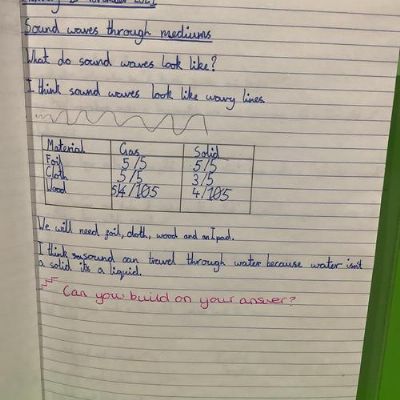 Sound waves through mediums
What do sound waves look like?
I think sound waves look like wavy lines
Material Gas Solid
Foil 5/5 5/5
Cloth 5/5 3/5
Wood 4/105
We will need foil, cloth, wood and an Ipad.
I think sound can travel through water because water isn't
a solid its a liquid.
Can you build on your answer?